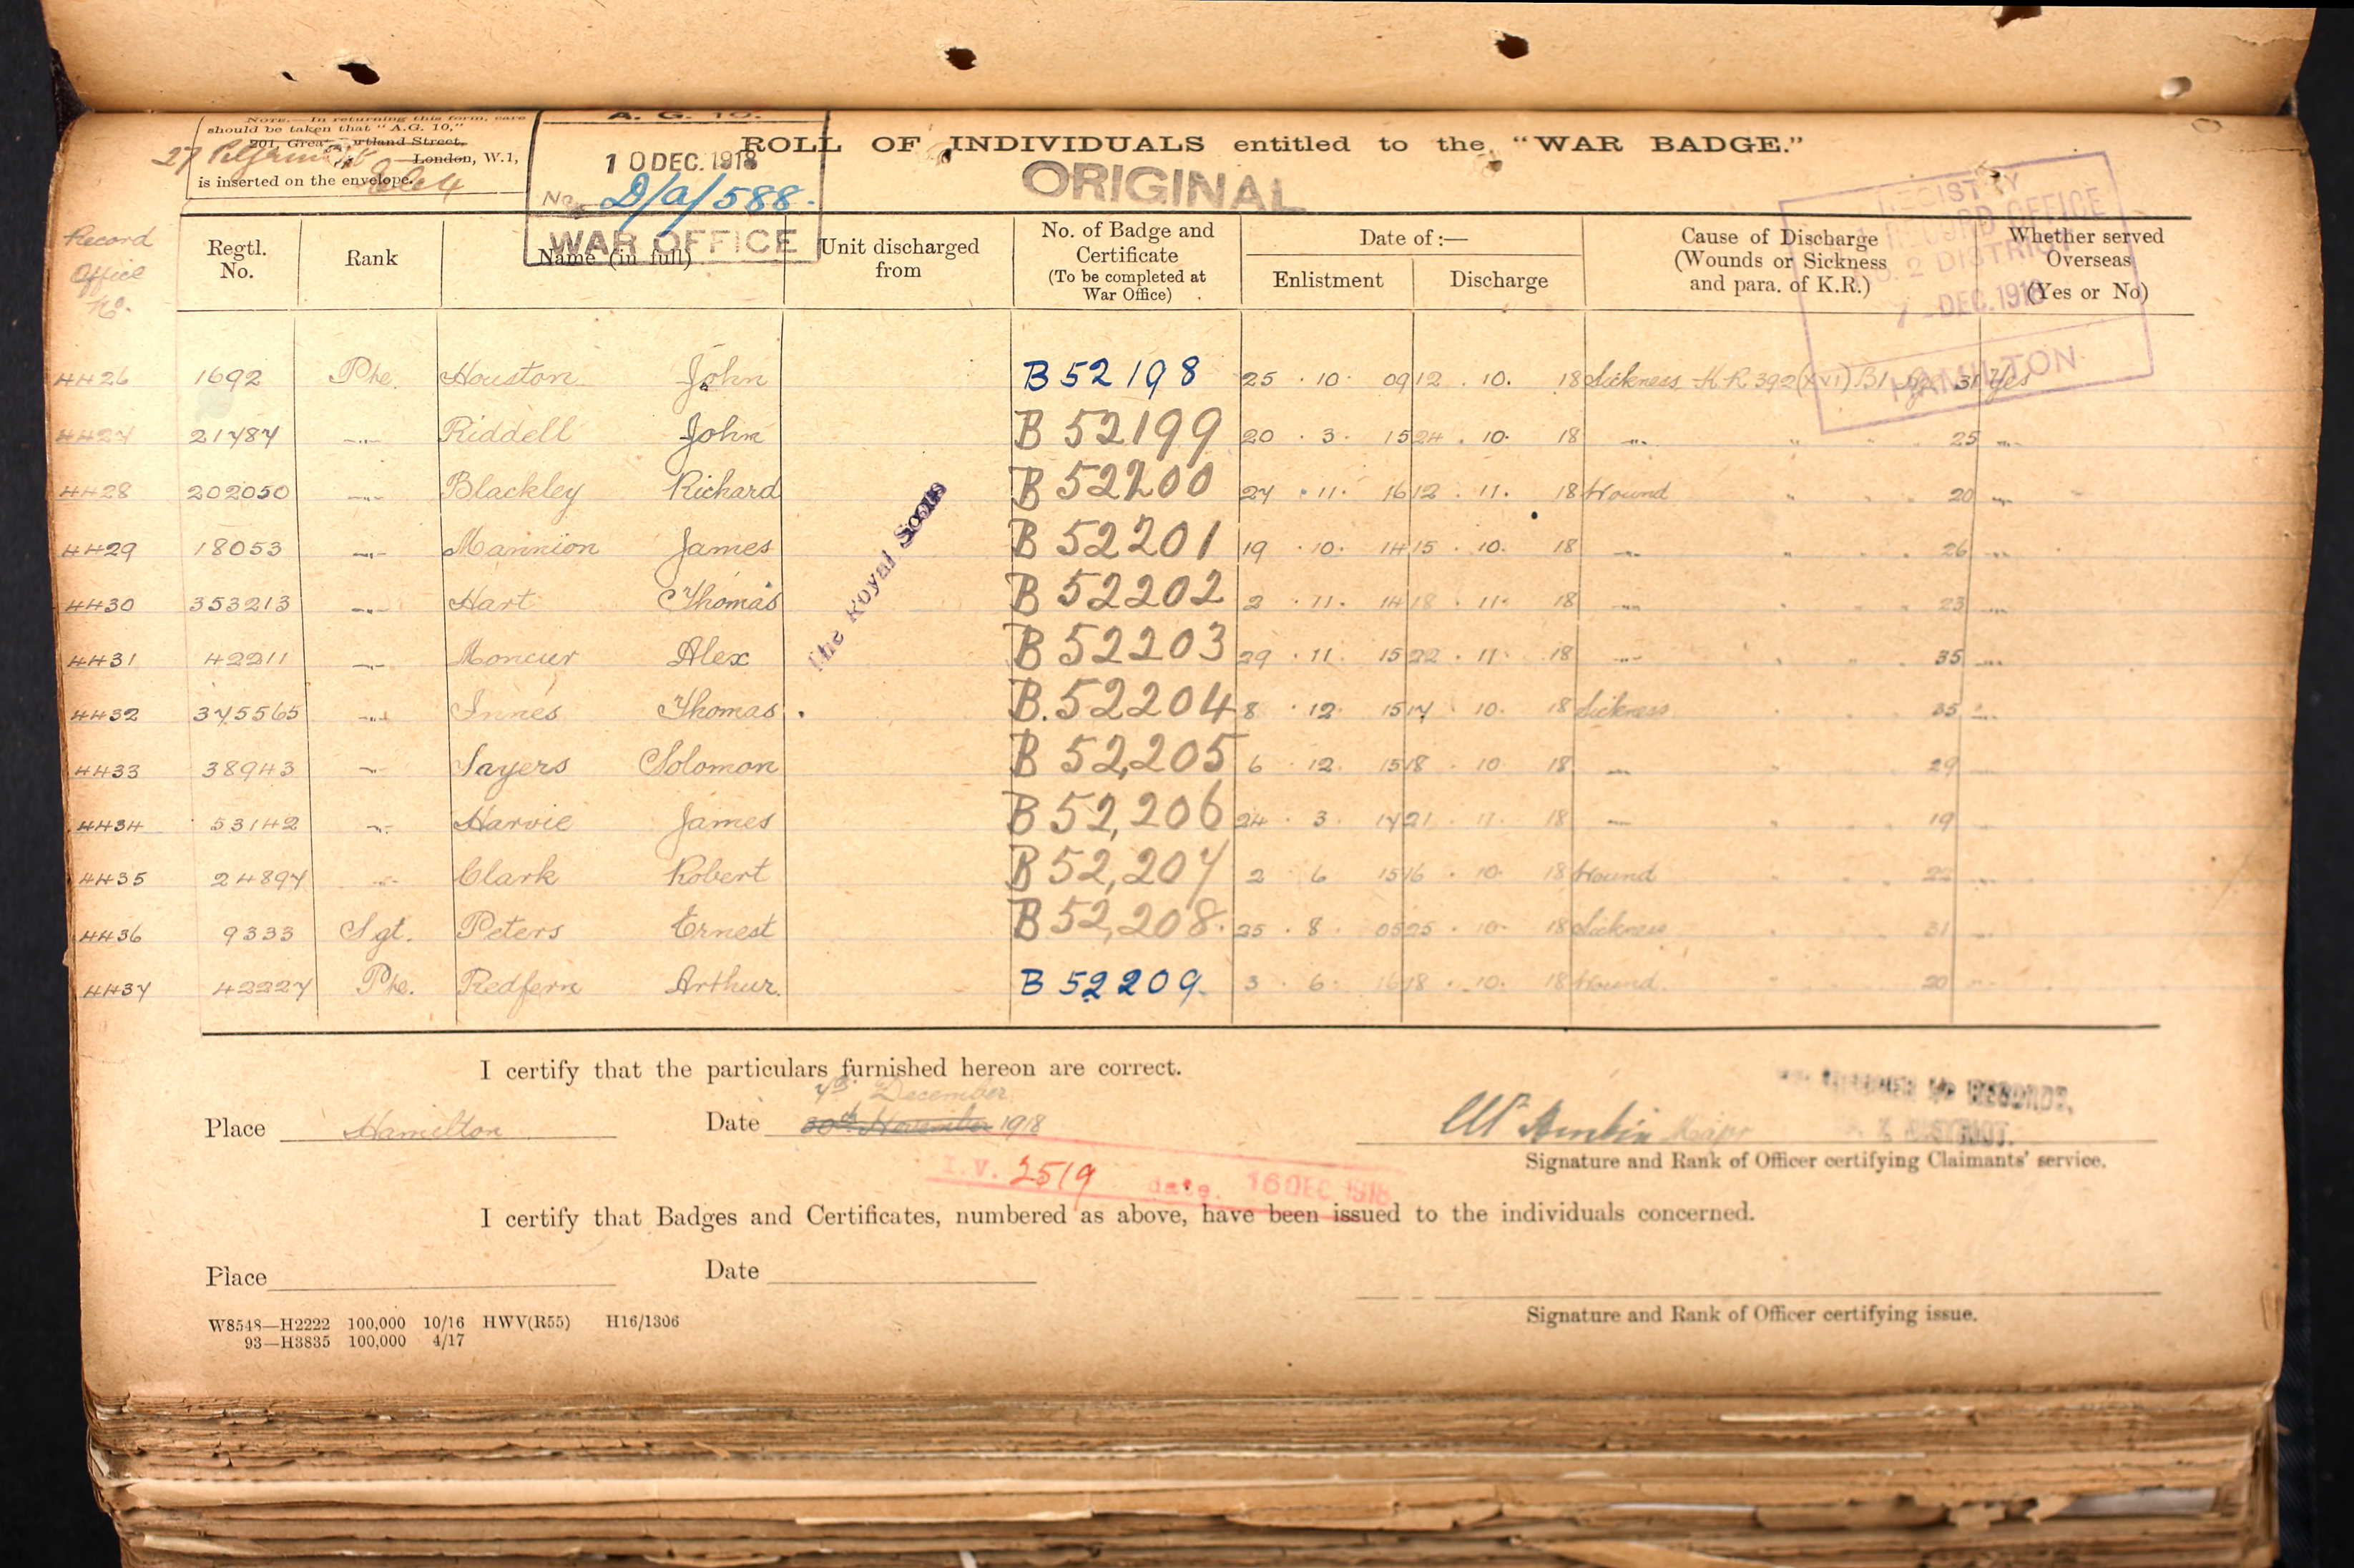 NOTE.—In returning this form, care
should be taken that "A.G. 10,"
201, Great Portland Street,
27 Pilgrim St London, W.1,
is inserted on the envelope. E.C.4
A. G. 10.
10 DEC. 1918
No. D/a/588.
WAR OFFICE
ROLL OF INDIVIDUALS entitled to the "WAR BADGE."
ORIGINAL
REGISTRY
RECORD OFFICE
No. 2 DISTRICT
7 - DEC. 1918
HAMILTON
Record Office No. Regtl. No. Rank Name (in full) Unit discharged from No. of Badge and Certificate (To be completed at War Office) Date of :— Enlistment Discharge Cause of Discharge (Wounds or Sickness and para. of K.R.) Whether served Overseas (Yes or No)
4426 1692 Pte. Houston John B 52198 25 . 10 . 09 12 . 10 . 18 Sickness K R 392 (XVI) B1 Age 31 Yes
4427 21787 -"- Riddell John B 52199 20 . 3 . 15 24 . 10 . 18 -"- " " 25 -"-
4428 202050 -"- Blackley Richard B 52200 27 . 11 . 16 12 . 11 . 18 Wound " " 20 -"-
4429 18053 -"- Mannion James B 52201 19 . 10 . 14 15 . 10 . 18 -"- " " 26 -"-
4430 353213 -"- Hart Thomas B 52202 2 . 11 . 14 18 . 11 . 18 -"- " " 23 -"-
4431 42211 -"- Moncur Alex B 52203 29 . 11 . 15 22 . 11 . 18 -"- " " 35 -"-
4432 375565 -"- Innes Thomas B. 52204 8 . 12 . 15 17 . 10 . 18 Sickness " " 35 -"-
4433 38943 -"- Sayers Solomon B 52,205 6 . 12 . 15 18 . 10 18 -"- " " 29 -"-
4434 53142 -"- Harvie James B 52,206 24 . 3 . 17 21 . 11 . 18 -"- " " 19 -"-
4435 24897 -"- Clark Robert B 52,207 2 6 15 16 . 10 . 18 Wound " " 22 -"-
4436 9333 Sgt. Peters Ernest B 52,208. 25 . 8 . 05 25 . 10 . 18 Sickness " " 31 -"-
4437 42227 Pte. Redfern Arthur. B 52209. 3 . 6 . 16 18 . 10 . 18 Wound " " 20 -"-
The Royal Scots
I certify that the particulars furnished hereon are correct.
7th December
Place Hamilton Date 30th November 1918
Major
RECORDS,
DISTRICT.
Signature and Rank of Officer certifying Claimants' service.
I.V. 2519 date. 16 DEC 1918
I certify that Badges and Certificates, numbered as above, have been issued to the individuals concerned.
Place Date
Signature and Rank of Officer certifying issue.
W8548—H2222 100,000 10/16 HWV(R55) H16/1306
93—H3835 100,000 4/17